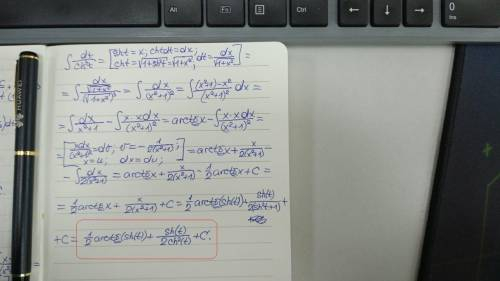 Alt
Fn
Ctrl
0
Ins
HUAWEI
∫ dt/ch³t = [sht = x; chtdt = dx; cht = √(1+sh²t) = √(1+x²); dt = dx/√(1+x²)] =
= ∫ (dx/√(1+x²))/(√(1+x²))³ = ∫ dx/(x²+1)² = ∫ ((x²+1)-x²)/(x²+1)² dx =
= ∫ dx/(x²+1) - ∫ x·xdx/(x²+1)² = arctgx - ∫ x·xdx/(x²+1)² =
= [xdx/(x²+1)² = dv; v = -1/(2(x²+1)); x = u; dx = du;] = arctgx + x/(2(x²+1)) -
- ∫ dx/(2(x²+1)) = arctgx + x/(2(x²+1)) - 1/2 arctgx + C =
= 1/2 arctgx + x/(2(x²+1)) + C = 1/2 arctg(sh(t)) + sh(t)/(2(sh²t+1)) +
+C = 1/2 arctg(sh(t)) + sh(t)/(2ch²(t)) + C.